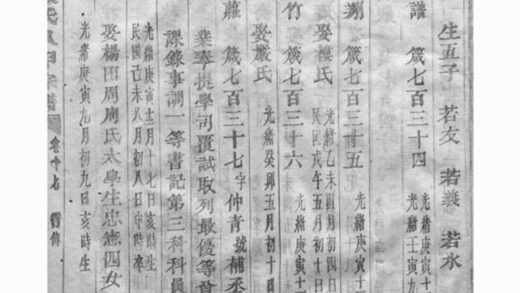 生五子 若友 若義 若水
譜 箴七百三十四 光緒庚寅十
光緒壬寅九
箴七百三十五 光緒庚寅十
娶樓氏 光緒乙未四月初四日
民國戊午五月初十日
竹 箴七百三十六 光緒庚寅十
娶嚴氏 光緒癸卯五月初十
箴七百三十七字仲青號補丞
業奉提學司覆試取列最優等
課錄事調一等書記第三科科員
光緒庚寅十二月十七日亥時生
民國己未八月初八日申時卒
娶楊田周周氏太學生忠憲四女
光緒庚寅九月初九日亥時生
卷十七